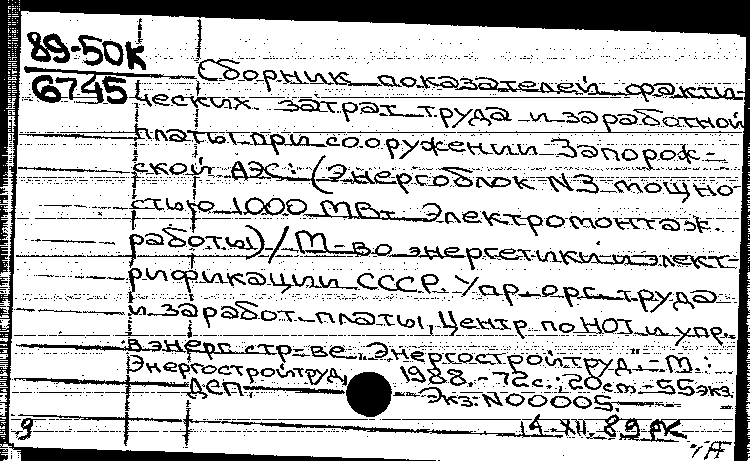 89-50К
6745
Сборник показателей факти-
ческих затрат труда и заработной
платы при сооружении Запорож-
ской АЭС: (Энергоблок N3 мощно-
стью 1000 МВт. Электромонтаж.
работы) / М-во энергетики и элект-
рификации СССР. Упр. орг. труда
и заработ. платы, Центр по НОТ и упр.
в энерг. стр-ве „Энергостройтруд". - М.:
Энергостройтруд, 1988. - 72с.; 20см. - 55экз.
ДСП. Экз: N00005.
9 14-XII.89 РК